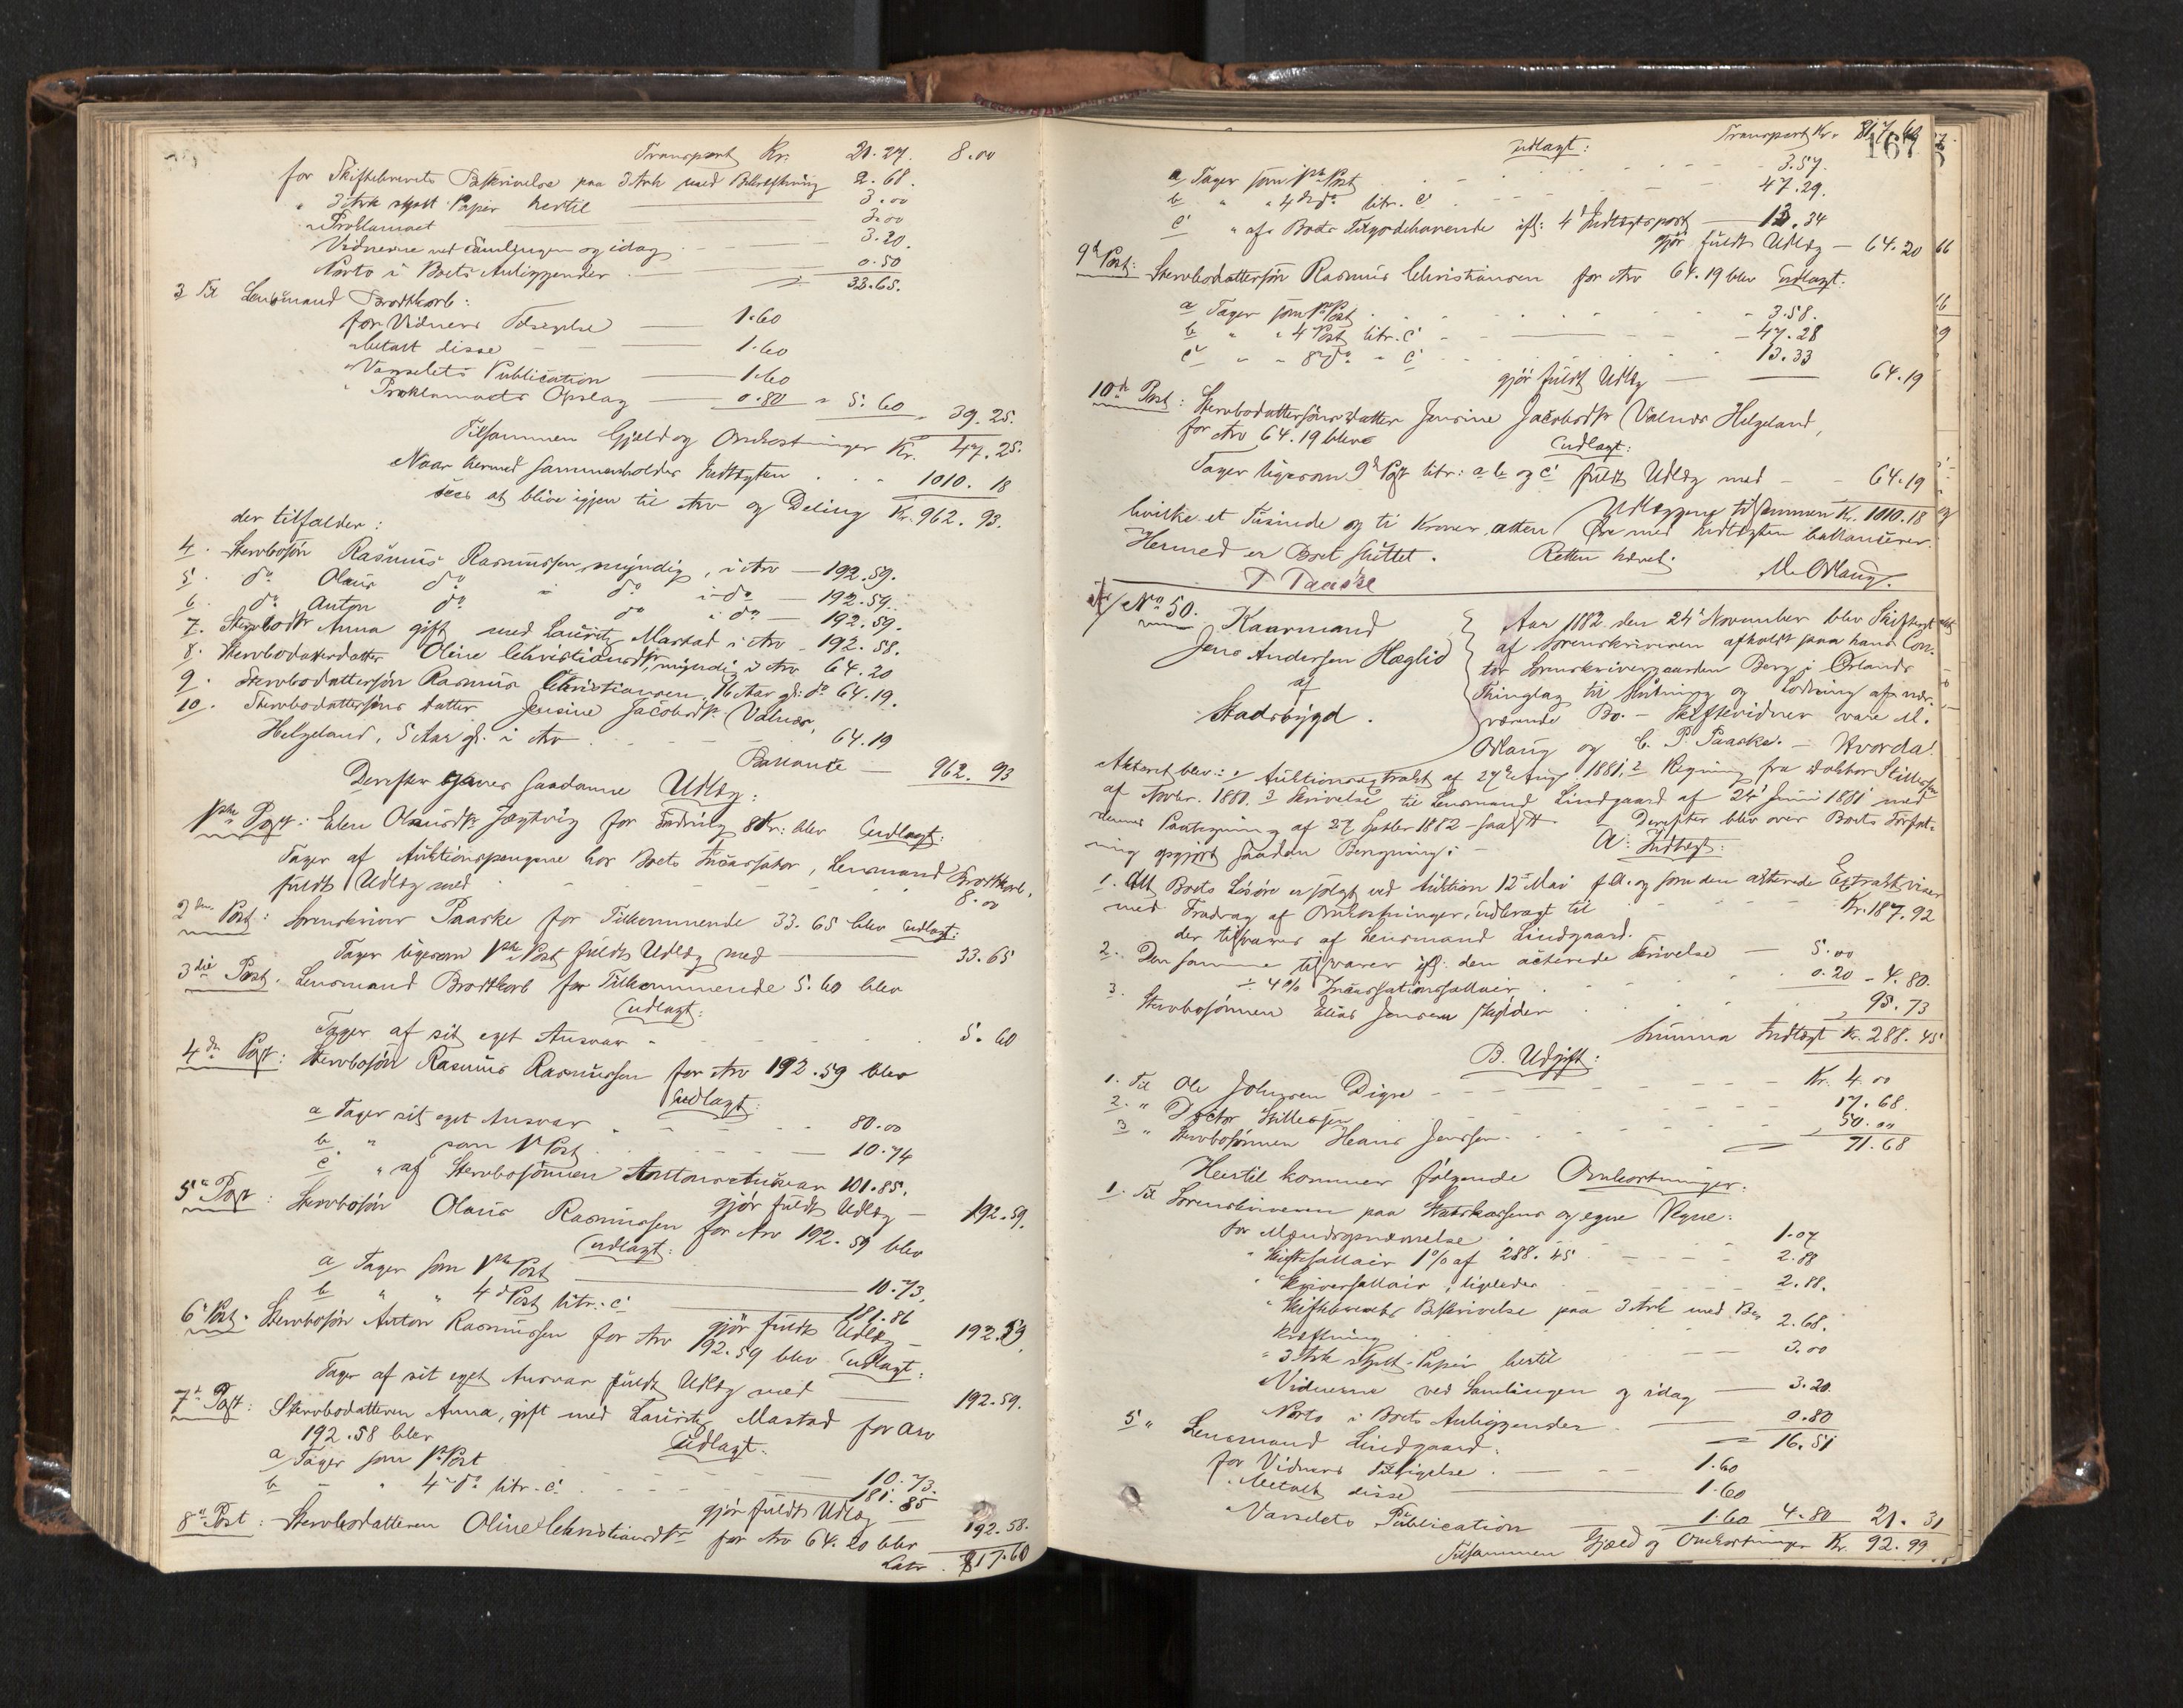 Transport Kr. 21.27. 8.00
for Skiftebrevets Beskrivelse paa 3 Ark med Bekræftning 2.68.
" 3 Ark stplt Papir hertil 3.00
" Proklamaet 3.00
Vidnerne ved Samlingen og idag 3.20.
Porto i Boets Anliggender 0.50
33.65.
3 Til Lensmand Brodtkorb:
for Vidners Tilsigelse 1.60
" betalt disse 1.60
" Varselets Publication 1.60
" Proklamaets Opslag 0.80 " 5.60 39.25.
Tilsammen Gjæld og Omkostninger Kr. 47.25.
Naar hermed sammenholdes Indtægten 1010.18
sees at blive igjen til Arv og Deling Kr. 962.93.
der tilfalder:
4. Stervbosøn Rasmus Rasmussen, myndig, i Arv 192.59.
5. do Olaus do " do i do 192.59.
6. do Anton do do i do 192.59.
7. Stervbodtr Anna gift med Lauritz Mastad i Arv 192.58.
8. Stervbodatterdatter Oline Christiansdtr, myndig i Arv 64.20
9. Stervbodattersøn Rasmus Christiansen, 16 Aar gl: do 64.19.
10. Stervbodattersøns datter Jensine Jacobsdtr Valnæs,
Helgeland, 5 Aar gl. i Arv 64.19
Balante 962.93
Derefter gjøres saadanne Udlæg:
1ste Post: Elen Olausdtr Jægtvig for Fordring 8 Kr: blev Udlagt:
Tager af Auktionspengene hos Boets Incassator, Lensmand Brodtkorb,
fuldt Udlæg med 8.00
2den Post: Sorenskriver Paaske for Tilkommende 33.65 blev Udlagt:
Tager ligesom 1ste Post fuldt Udlæg med 33.65
3die Post. Lensmand Brodtkorb for Tilkommende 5.60 blev
Udlagt:
Tager af sit eget Ansvar 5.60
4de Post: Stervbosøn Rasmus Rasmussen for Arv 192.59 blev
Udlagt:
a Tager sit eget Ansvar 80.00
b. " som 1ste Post 10.74
c " af Stervbosønnen Antons Ansvar 101.85.
gjør fuldt Udlæg 192.59.
5te Post: Stervbosøn Olaus Rasmussen for Arv 192.59 blev
Udlagt:
a/ Tager som 1ste Post 10.73.
b " " 4de Post litr: c 181.86
gjør fuldt Udlæg 192.59.
6te Post. Stervbosøn Anton Rasmussen for Arv 192.59 blev Udlagt:
Tager af sit eget Ansvar fuldt Udlæg med 192.59.
7de Post: Stervbodatteren Anna, gift med Lauritz Mastad for Arv
192.58 blev Udlagt:
a/ Tager som 1ste Post 10.73.
b " " 4de do litr. c. 181.85
gjør fuldt Udlæg 192.58.
8de Post: Stervbodatteren Oline Christiansdtr for Arv 64.20 blev
Latr. 817.60
167
Transport Kr. 817.60
Udlagt:
a/ Tager som 1ste Post 3.57.
b " " 4de do litr. c. 47.29.
c " af Boets Tilgodehavende ifl: 4de Indtægtspost 13.34
gjør fuldt Udlæg 64.20
9de Post: Stervbodattersøn Rasmus Christiansen for Arv 64.19 blev Udlagt.
a Tager som 1ste Post 3.58.
b " " 4 Post litr. c 47.28
c " " 8de do " c 13.33
gjør fuldt Udlæg 64.19
10de Post: Stervbodattersøns datter Jensine Jacobsdtr Valnæs Helgeland,
for Arv 64.19 blev Udlagt:
Tager ligesom 9de Post litr: a b og c fuldt Udlæg med 64.19
Udlæggene tilsammen Kr. 1010.18
hvilke et Tusinde og ti Kroner, atten Øre med Indtægten ballancerer.
Hermed er Boet sluttet. Retten hævet.
P Paaske M. Ørlaug.
No 50. Kaarmand
Jens Andersen Hæglid
af
Stadsbygd.
Aar 1882 den 24de November blev Skifteret
af Sorenskriveren afholdt paa hans Con-
tor Sorenskrivergaarden Berg i Ørlands
Thinglag til Slutning og Lodning af nær-
værende Bo. – Skiftevidner vare M.
Ørlaug og C. P. Paaske. – Hvorda!
Akteret blev: 1 Auktionsextrakt af 27de Aug. 1881, 2 Regning fra Doktor Stillesen
af Novbr. 1880. 3 Skrivelse til Lensmand Lindgaard af 24de Juni 1881 med
dennes Paategning af 27 Septbr 1882 – saalt. – Derefter blev over Boets Forfat-
ning opgjort saadan Beregning: –
A: Indtægt:
1. Alt Boets Løsøre er solgt ved Auktion 12te Mai f.A. og som den akterede Extrakt viser
med Fradrag af Omkostninger, udbragt til Kr. 187.92
der tilsvares af Lensmand Lindgaard.
2. Den samme tilsvarer ifl: den akterede Skrivelse 5.00
÷ 4% Incassationssallair 0.20 – 4.80.
3. Stervbosønnen Elias Jensen skylder 95.73
Summa Indtægt Kr. 288.45
B. Udgift:
1. Til Ole Johnsen Digre Kr. 4.00
2. " Doctor Stillesen 17.68.
3 " Stervbosønnen Hans Jenssen 50.00
71.68
Hertil kommer følgende Omkostninger:
1. Til Sorenskriveren paa Statskassens og egne Vegne:
for Mændsopnævnelse 1.07
" Skiftesallair 1% af 288.45 2.88
" Skriversallair, ligeledes 2.88.
" Skiftebrevets Beskrivelse paa 3 Ark med Be-
kræftning 2.68.
" 3 Ark stplt. Papir hertil 3.00
Vidnerne ved Samlingen og idag 3.20.
Porto i Boets Anliggender 0.80
16.51
5 " Lensmand Lindgaard:
for Vidners Tilsigelse 1.60
" Betalt disse 1.60
" Varselets Publication 1.60 4.80 21.31
Tilsammen Gjæld og Omkostninger Kr. 92.99